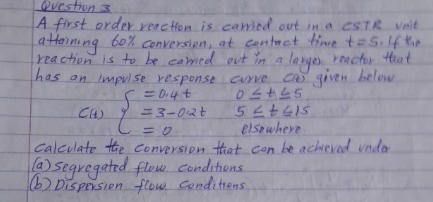 Question 3
A first order reaction is carried out in a CSTR unit
attaining 60% conversion, at contact time t=5. If the
reaction is to be carried out in a larger reactor that
has an impulse response curve C(t) given below
= 0.4t 0 ≤ t ≤ 5
C(t) { = 3-0.2t 5 ≤ t ≤ 15
= 0 elsewhere
Calculate the conversion that can be achieved under
(a) Segregated flow conditions
(b) Dispersion flow conditions